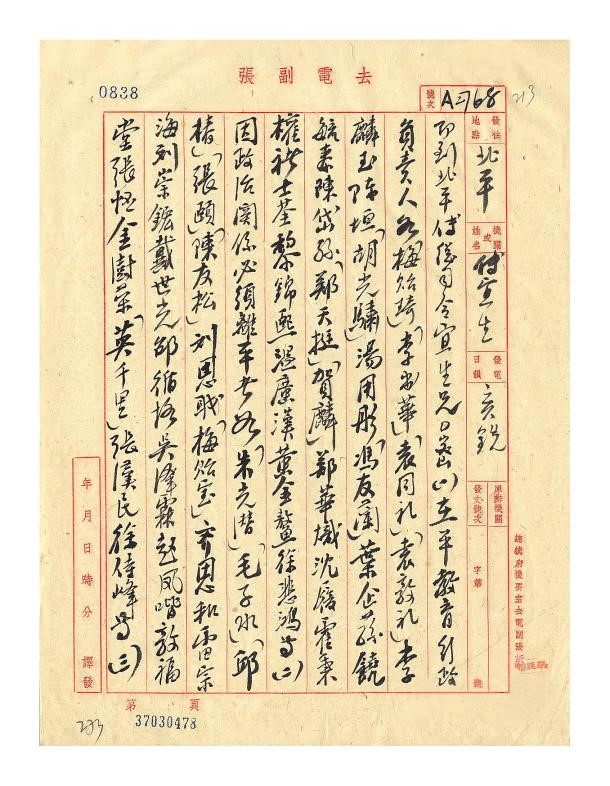 去電副張
0838
號次 A2768
213
發往地點 北平
機關或姓名 傅宜生
發電日韻 亥銑
原辦機關發文號次 字第 號
總統府機要室去電副張紙
即到北平傅總司令宜生兄○密(一)在平教育行政
負責人如梅貽琦、李書華、袁同禮、袁敦禮、李
麟玉、陳垣、胡先驌、湯用彤、馮友蘭、葉企孫、饒
毓泰、陳岱孫、鄭天挺、賀麟、鄭華熾、沈履、霍秉
權、褚士荃、黎錦熙、溫廣漢、黃金鰲、徐悲鴻等(二)
因政治關係必須離平者如朱光潛、毛子水、邱
椿、張頤、陳友松、劉思職、梅貽寶、齊思和、雷宗
海、劉崇鋐、戴世光、邵循恪、吳澤霖、趙鳳喈、敦福
堂、張恆、金澍榮、英千里、張漢民、徐侍峰等(三)
年月日時分 譯發
第 頁
37030478
213